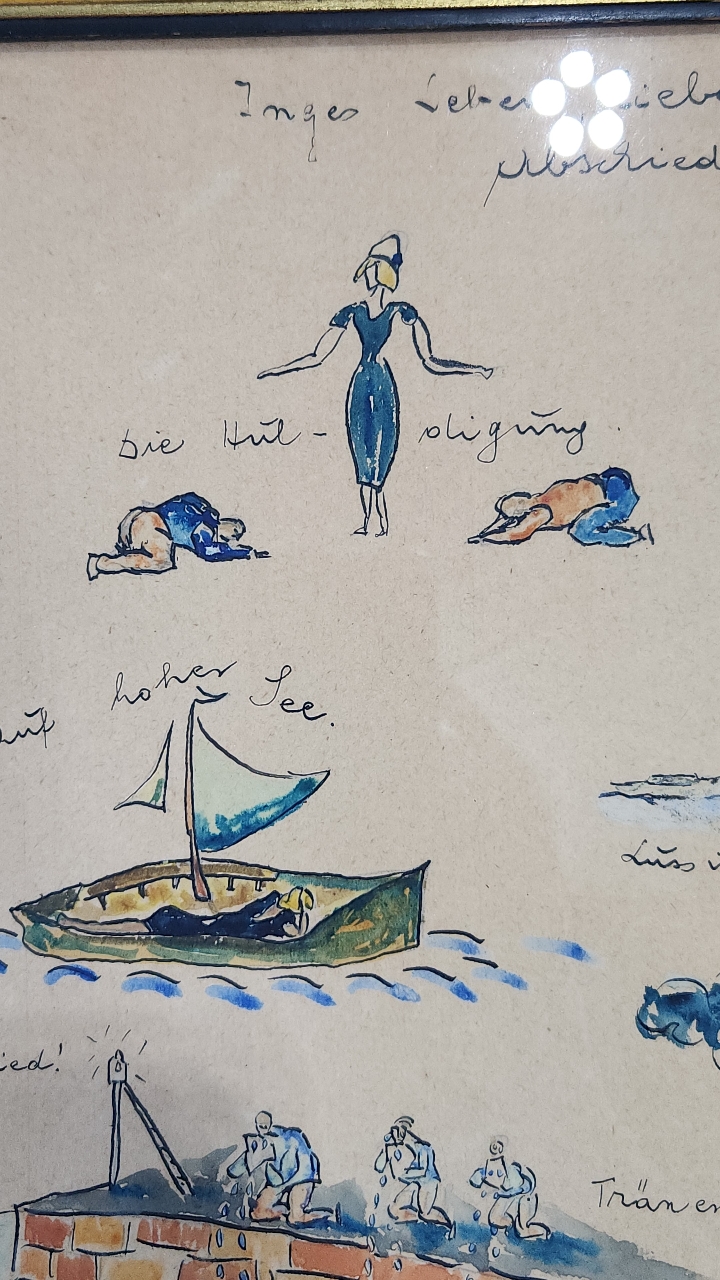 Inges Leben Liebe
Abschied
Die Hul- digung.
auf hoher See.
Kuss
ied!
Tränen